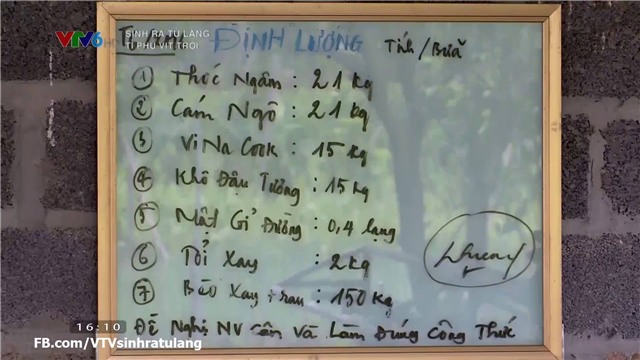 VTV6 HD
SINH RA TỪ LÀNG
TỈ PHÚ VỊT TRỜI
ĐỊNH LƯỢNG Tính/Bữa
① Thóc Ngâm : 21 kg
② Cám Ngô : 21 kg
③ ViNa Cook : 15 kg
④ Khô Đậu Tương : 15 kg
⑤ Mật Gỉ Đường : 0,4 lạng
⑥ Tỏi Xay : 2 kg
⑦ Bèo Xay : 150 kg
Đề Nghị NV Cân Và Làm Đúng Công Thức
16:10
FB.com/VTVsinhratulang